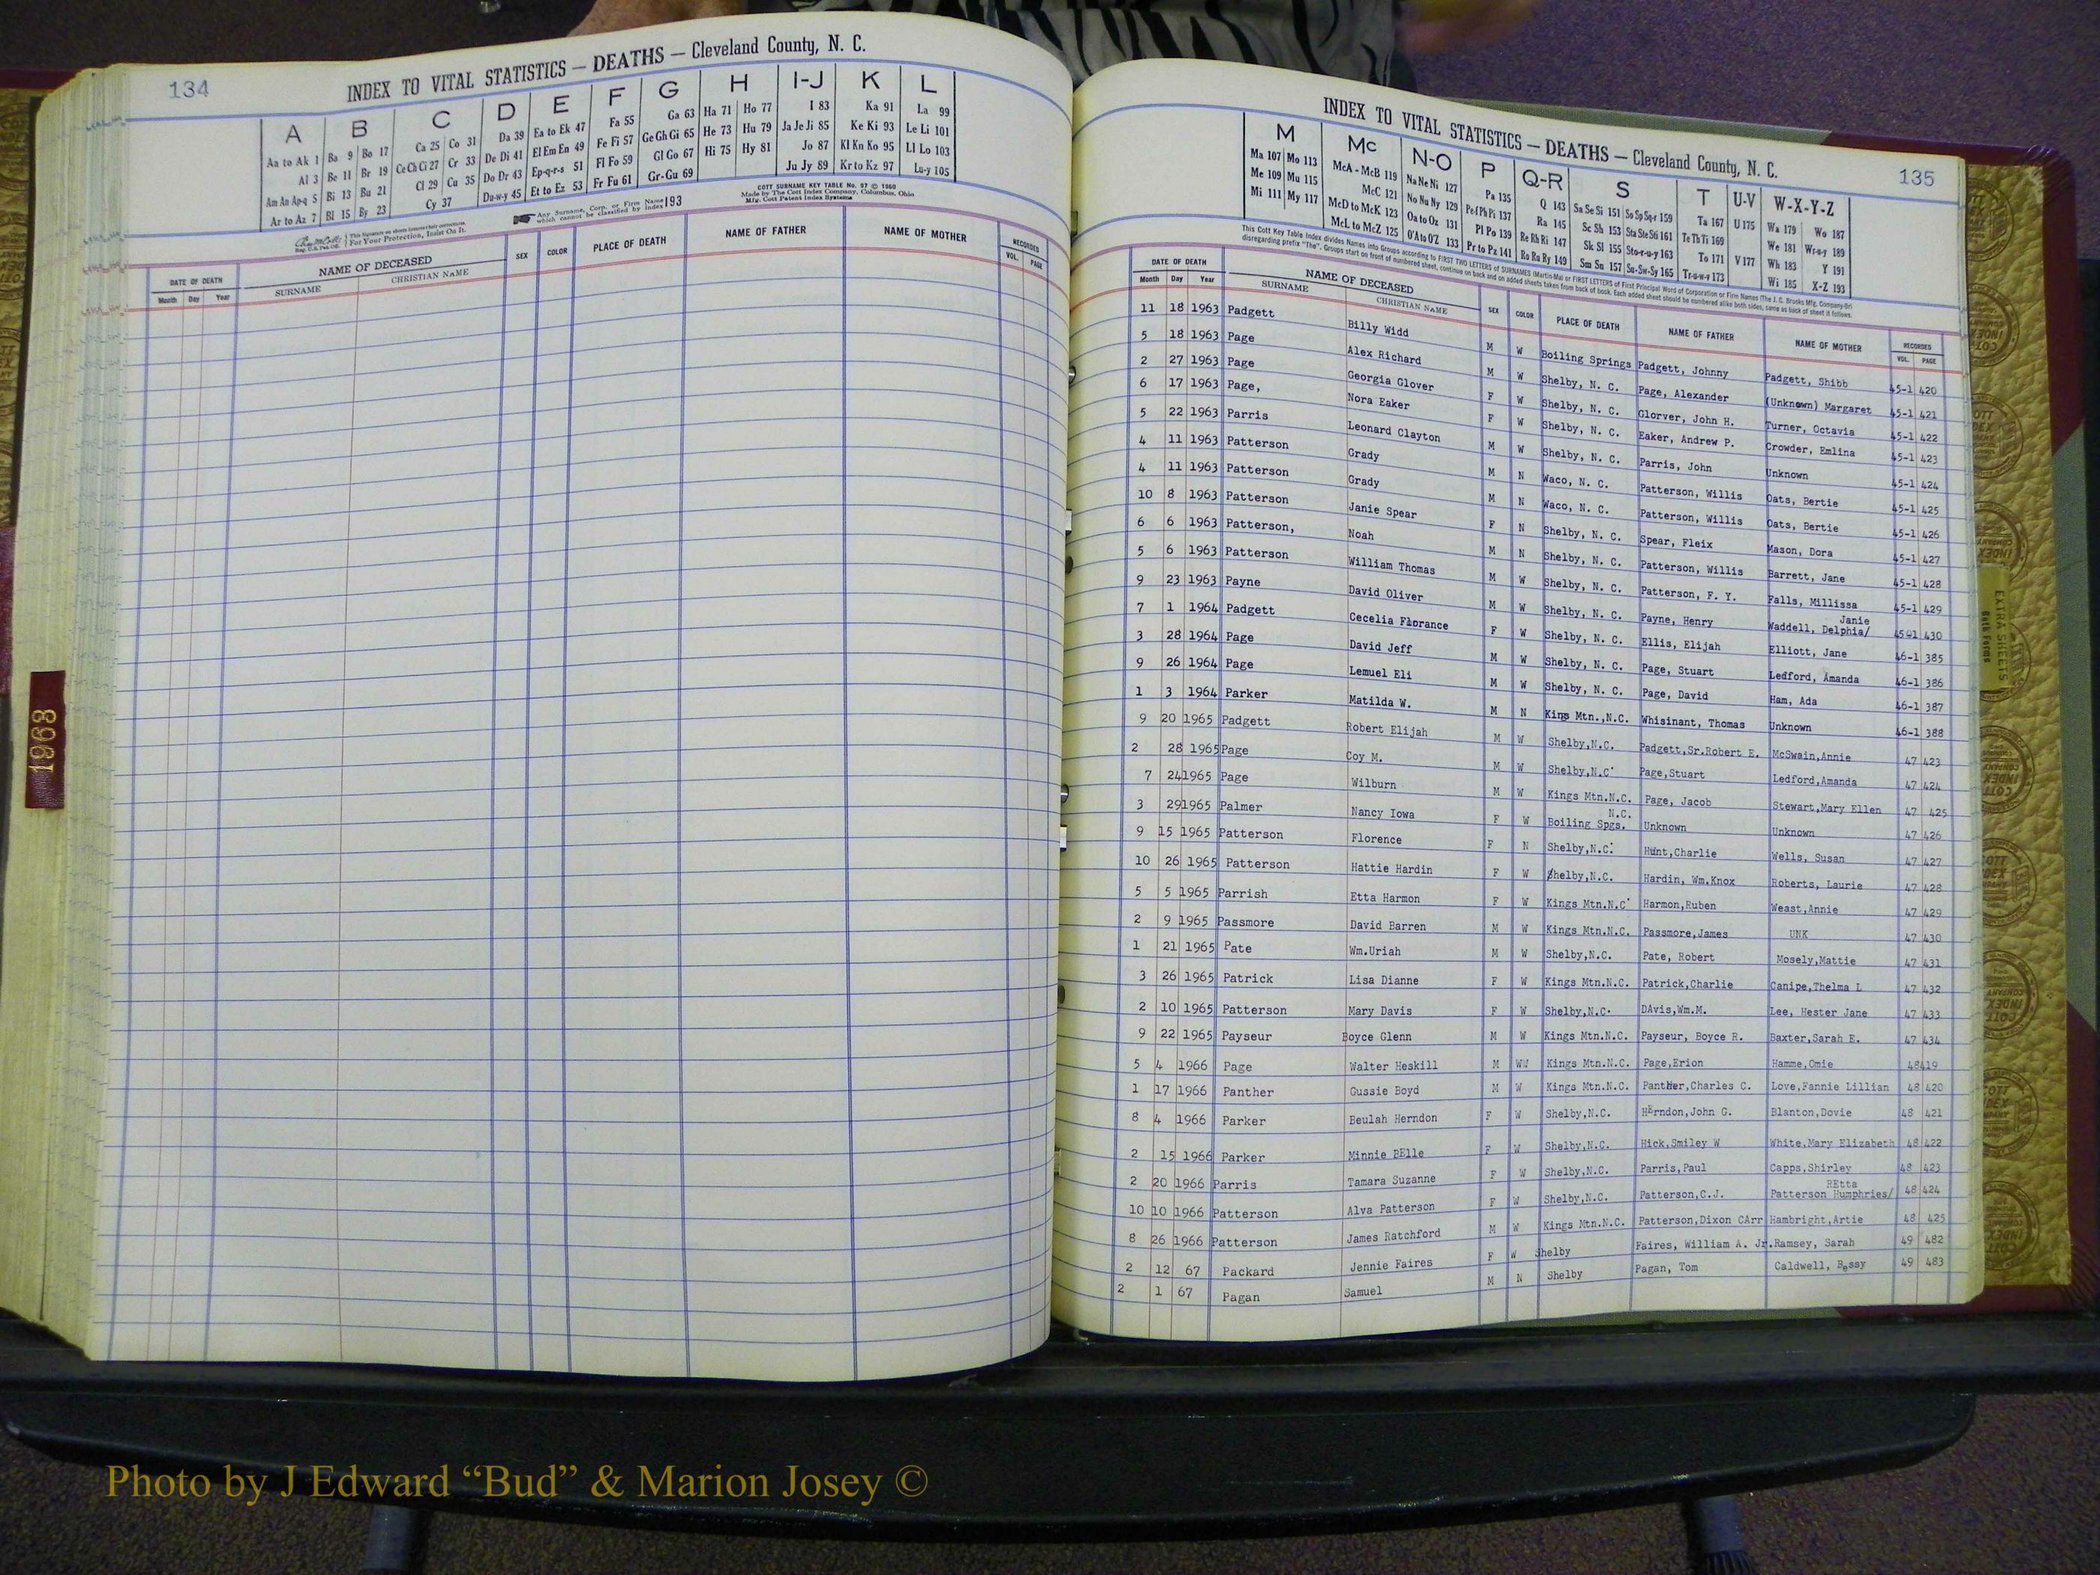 134
INDEX TO VITAL STATISTICS — DEATHS — Cleveland County, N. C.
A B C D E F G H I-J K L
Aa to Ak 1 Ba 9 Bo 17 Ca 25 Co 31 Da 39 Ea to Ek 47 Fa 55 Ga 63 Ha 71 Ho 77 I 83 Ka 91 La 99
Al 3 Be 11 Br 19 Ce Ch Ci 27 Cr 33 De Di 41 El Em En 49 Fe Fi 57 Ge Gh Gi 65 He 73 Hu 79 Ja Je Ji 85 Ke Ki 93 Le Li 101
Am An Ap-q 5 Bi 13 Bu 21 Cl 29 Cu 35 Do Dr 43 Ep-q-r-s 51 Fl Fo 59 Gl Go 67 Hi 75 Hy 81 Jo 87 Kl Kn Ko 95 Ll Lo 103
Ar to Az 7 Bl 15 By 23 Cy 37 Du-w-y 45 Et to Ez 53 Fr Fu 61 Gr-Gu 69 Ju Jy 89 Kr to Kz 97 Lu-y 105
COTT SURNAME KEY TABLE No. 97 © 1960
Made by The Cott Index Company, Columbus, Ohio
Mfg. Cott Patent Index Systems
Any Surname, Corp. or Firm Name which cannot be classified by index 193
For Your Protection, Insist On It.
DATE OF DEATH NAME OF DECEASED SEX COLOR PLACE OF DEATH NAME OF FATHER NAME OF MOTHER RECORDED
Month Day Year SURNAME CHRISTIAN NAME VOL. PAGE
1968
135
INDEX TO VITAL STATISTICS — DEATHS — Cleveland County, N. C.
M Mc N-O P Q-R S T U-V W-X-Y-Z
Ma 107 Mo 113 McA - McB 119 Na Ne Ni 127 Pa 135 Q 143 Sa Se Si 151 So Sp Sq-r 159 Ta 167 U 175 Wa 179 Wo 187
Me 109 Mu 115 McC 121 No Nu Ny 129 Pe-f Ph Pi 137 Ra 145 Sc Sh 153 Sta Ste Sti 161 Te Th Ti 169 We 181 Wr-u-y 189
Mi 111 My 117 McD to McK 123 Oa to Oz 131 Pl Po 139 Re Rh Ri 147 Sk Sl 155 Sto-r-u-y 163 To 171 V 177 Wh 183 Y 191
McL to McZ 125 O'A to O'Z 133 Pr to Pz 141 Ro Ru Ry 149 Sm Sn 157 Su-Sw-Sy 165 Tr-u-w-y 173 Wi 185 X-Z 193
This Cott Key Table Index divides Names into Groups according to FIRST TWO LETTERS of SURNAMES (Martin-Ma) or FIRST LETTERS of First Principal Word of Corporation or Firm Names (The J. C. Brooks Mfg. Company-Br)
disregarding prefix "The". Groups start on front of numbered sheet, continue on back and on added sheets taken from back of book. Each added sheet should be numbered alike both sides, same as back of sheet it follows.
DATE OF DEATH NAME OF DECEASED SEX COLOR PLACE OF DEATH NAME OF FATHER NAME OF MOTHER RECORDED
Month Day Year SURNAME CHRISTIAN NAME VOL. PAGE
11 18 1963 Padgett Billy Widd M W Boiling Springs Padgett, Johnny Padgett, Shibb 45-1 420
5 18 1963 Page Alex Richard M W Shelby, N. C. Page, Alexander (Unknown) Margaret 45-1 421
2 27 1963 Page Georgia Glover F W Shelby, N. C. Glorver, John H. Turner, Octavia 45-1 422
6 17 1963 Page, Nora Eaker F W Shelby, N. C. Eaker, Andrew P. Crowder, Emlina 45-1 423
5 22 1963 Parris Leonard Clayton M W Shelby, N. C. Parris, John Unknown 45-1 424
4 11 1963 Patterson Grady M N Waco, N. C. Patterson, Willis Oats, Bertie 45-1 425
4 11 1963 Patterson Grady M N Waco, N. C. Patterson, Willis Oats, Bertie 45-1 426
10 8 1963 Patterson Janie Spear F N Shelby, N. C. Spear, Fleix Mason, Dora 45-1 427
6 6 1963 Patterson, Noah M N Shelby, N. C. Patterson, Willis Barrett, Jane 45-1 428
5 6 1963 Patterson William Thomas M W Shelby, N. C. Patterson, F. Y. Falls, Millissa 45-1 429
9 23 1963 Payne David Oliver M W Shelby, N. C. Payne, Henry Waddell, Delphia/ Janie 45-1 430
7 1 1964 Padgett Cecelia Florance F W Shelby, N. C. Ellis, Elijah Elliott, Jane 46-1 385
3 28 1964 Page David Jeff M W Shelby, N. C. Page, Stuart Ledford, Amanda 46-1 386
9 26 1964 Page Lemuel Eli M W Shelby, N. C. Page, David Ham, Ada 46-1 387
1 3 1964 Parker Matilda W. M N Kings Mtn.,N.C. Whisinant, Thomas Unknown 46-1 388
9 20 1965 Padgett Robert Elijah M W Shelby,N.C. Padgett,Sr.Robert E. McSwain,Annie 47 423
2 28 1965 Page Coy M. M W Shelby,N.C. Page,Stuart Ledford,Amanda 47 424
7 24 1965 Page Wilburn M W Kings Mtn.N.C. Page, Jacob Stewart,Mary Ellen 47 425
3 29 1965 Palmer Nancy Iowa F W Boiling Spgs. N.C. Unknown Unknown 47 426
9 15 1965 Patterson Florence F N Shelby,N.C. Hunt,Charlie Wells, Susan 47 427
10 26 1965 Patterson Hattie Hardin F W Shelby,N.C. Hardin, Wm.Knox Roberts, Laurie 47 428
5 5 1965 Parrish Etta Harmon F W Kings Mtn.N.C. Harmon,Ruben Weast,Annie 47 429
2 9 1965 Passmore David Barren M W Kings Mtn.N.C. Passmore,James UNK 47 430
1 21 1965 Pate Wm.Uriah M W Shelby,N.C. Pate, Robert Mosely,Mattie 47 431
3 26 1965 Patrick Lisa Dianne F W Kings Mtn.N.C. Patrick,Charlie Canipe,Thelma L 47 432
2 10 1965 Patterson Mary Davis F W Shelby,N.C. DAvis,Wm.M. Lee, Hester Jane 47 433
9 22 1965 Payseur Boyce Glenn M W Kings Mtn.N.C. Payseur, Boyce R. Baxter,Sarah E. 47 434
5 4 1966 Page Walter Heskill M WW Kings Mtn.N.C. Page,Erion Hamme,Omie 48 419
1 17 1966 Panther Gussie Boyd M W Kings Mtn.N.C. Panther,Charles C. Love,Fannie Lillian 48 420
8 4 1966 Parker Beulah Herndon F W Shelby,N.C. HErndon,John G. Blanton,Dovie 48 421
2 15 1966 Parker Minnie BElle F W Shelby,N.C. Hick,Smiley W White,Mary Elizabeth 48 422
2 20 1966 Parris Tamara Suzanne F W Shelby,N.C. Parris,Paul Capps,Shirley 48 423
10 10 1966 Patterson Alva Patterson F W Shelby,N.C. Patterson,C.J. Patterson Humphries/ REtta 48 424
8 26 1966 Patterson James Ratchford M W Kings Mtn.N.C. Patterson,Dixon CArr Hambright,Artie 48 425
2 12 67 Packard Jennie Faires F W Shelby Faires, William A. Jr. Ramsey, Sarah 49 482
2 1 67 Pagan Samuel M N Shelby Pagan, Tom Caldwell, Bessy 49 483
EXTRA SHEETS
Photo by J Edward “Bud” & Marion Josey ©